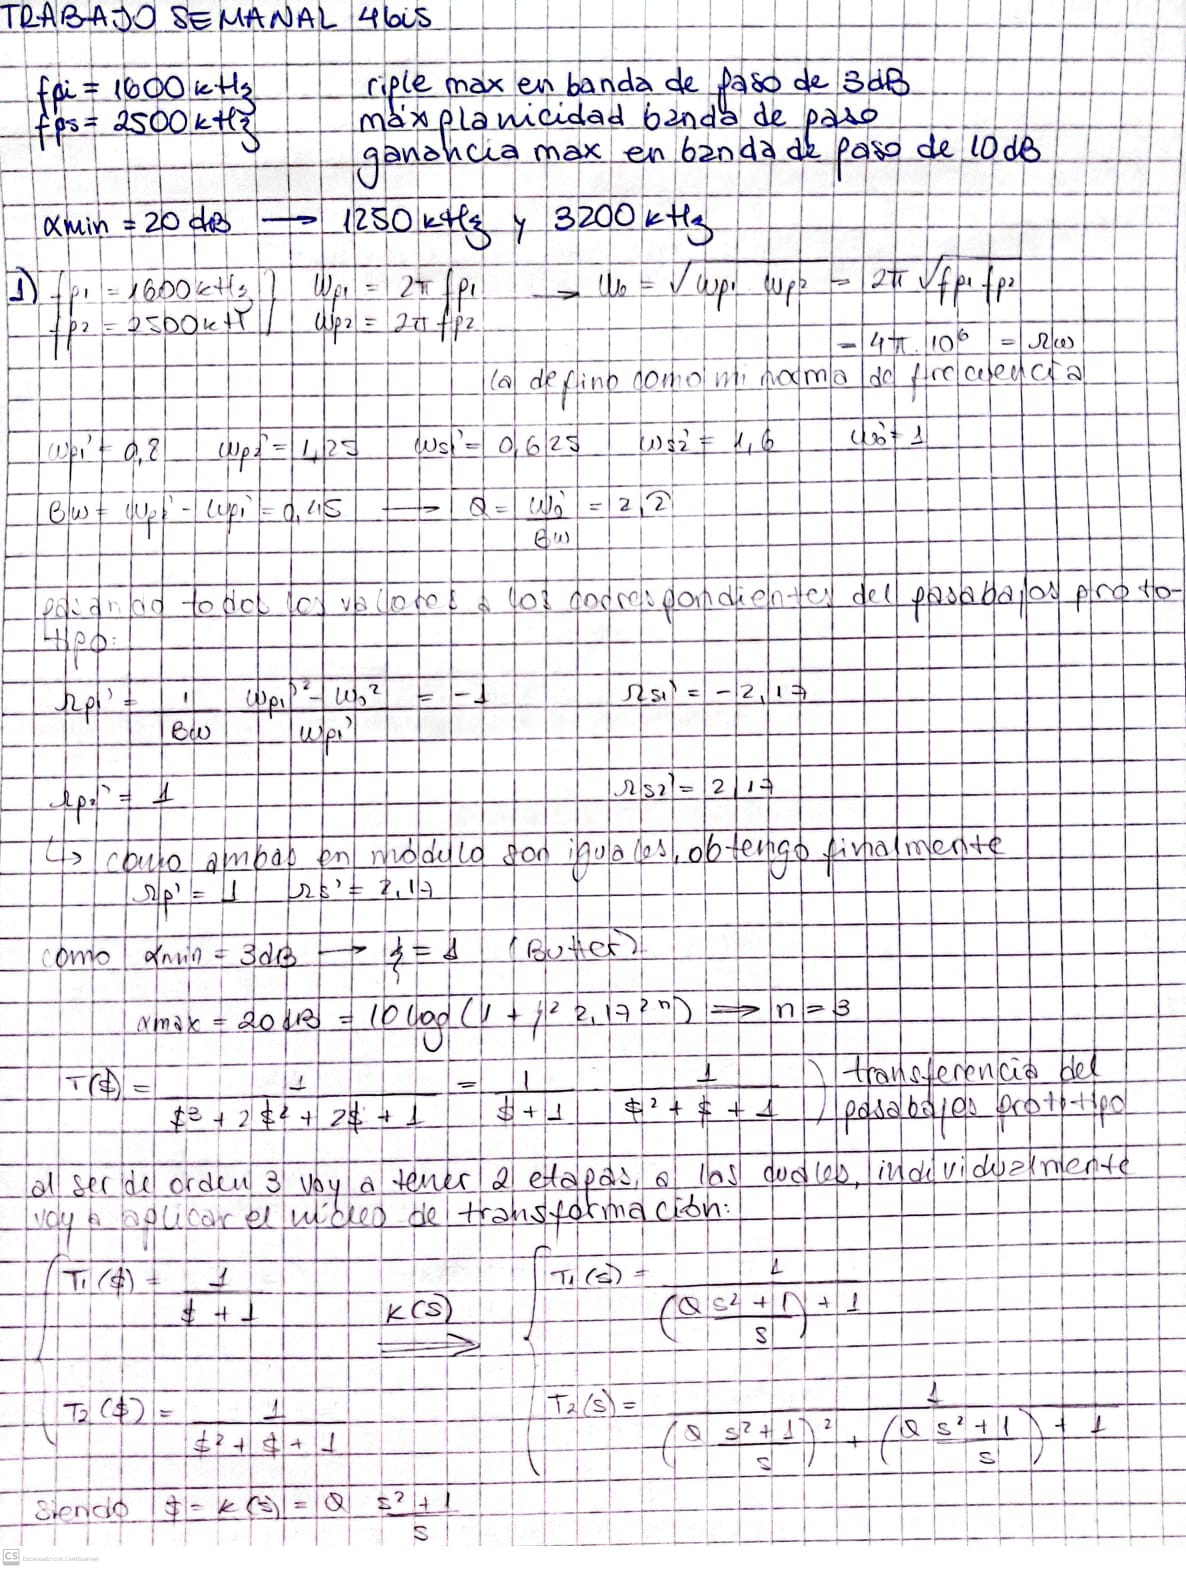 TRABAJO SEMANAL 4bis
fpi = 1600 kHz riple max en banda de paso de 3dB
fps = 2500 kHz máx planicidad banda de paso
ganancia max en banda de paso de 10 dB
αmin = 20 dB → 1250 kHz y 3200 kHz
1) fp1 = 1600 kHz } Wp1 = 2π fp1 → W0 = √(Wp1 · Wp2) = 2π √(fp1 · fp2)
fp2 = 2500 kH Wp2 = 2π fp2
= 4π · 10^6 = Ωω
la defino como mi norma de frecuencia
Wp1' = 0,8 Wp2' = 1,25 Ws1' = 0,625 Ws2' = 1,6 W0' = 1
BW = Wp2' - Wp1' = 0,45 → Q = W0' / BW = 2,2
pasando todos los valores a los correspondientes del pasabajos proto-
tipo:
Ωp1' = 1/BW (Wp1'² - W0²)/Wp1' = -1 Ωs1' = -2,17
Ωp2' = 1 Ωs2' = 2,17
↳ como ambas en módulo son iguales, obtengo finalmente
Ωp' = 1 Ωs' = 2,17
como αmin = 3dB → ξ = 1 (Butter)
αmax = 20 dB = 10 log (1 + 1² 2,17^2n) ⇒ n = 3
T($) = 1 / ($³ + 2$² + 2$ + 1) = 1/($ + 1) 1/($² + $ + 1) } transferencia del
pasabajos prototipo
al ser de orden 3 voy a tener 2 etapas, a las cuales, individualmente
voy a aplicar el núcleo de transformación:
T1($) = 1/($ + 1) K(S) ⇒ T1(s) = 1 / ((Q (s² + 1)/s) + 1)
T2($) = 1/($² + $ + 1) T2(s) = 1 / ((Q (s² + 1)/s)² + (Q (s² + 1)/s) + 1)
siendo $ = K(s) = Q (s² + 1)/s
CS Escaneado con CamScanner